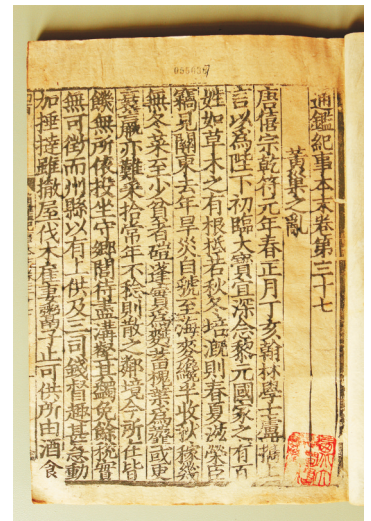 通鑑紀事本末卷第三十七
黃巢之亂
唐僖宗乾符元年春正月丁亥翰林學士盧攜上
言以為陛下初臨大寶宜深念黎元國家之有百
姓如草木之有根柢若秋冬培溉則春夏滋榮臣
竊見關東去年旱災自虢至海麥纔半收秋稼幾
無冬菜至少貧者磑蓬實為麵蓄槐葉為虀或更
衰羸亦難采拾常年不稔則散之鄰境今所在皆
饑無所依投坐守鄉閭待盡溝壑其蠲免餘稅實
無可徵而州縣以有上供及三司錢督趣甚急動
加捶撻雖撤屋伐木雇妻鬻子止可供所由酒食